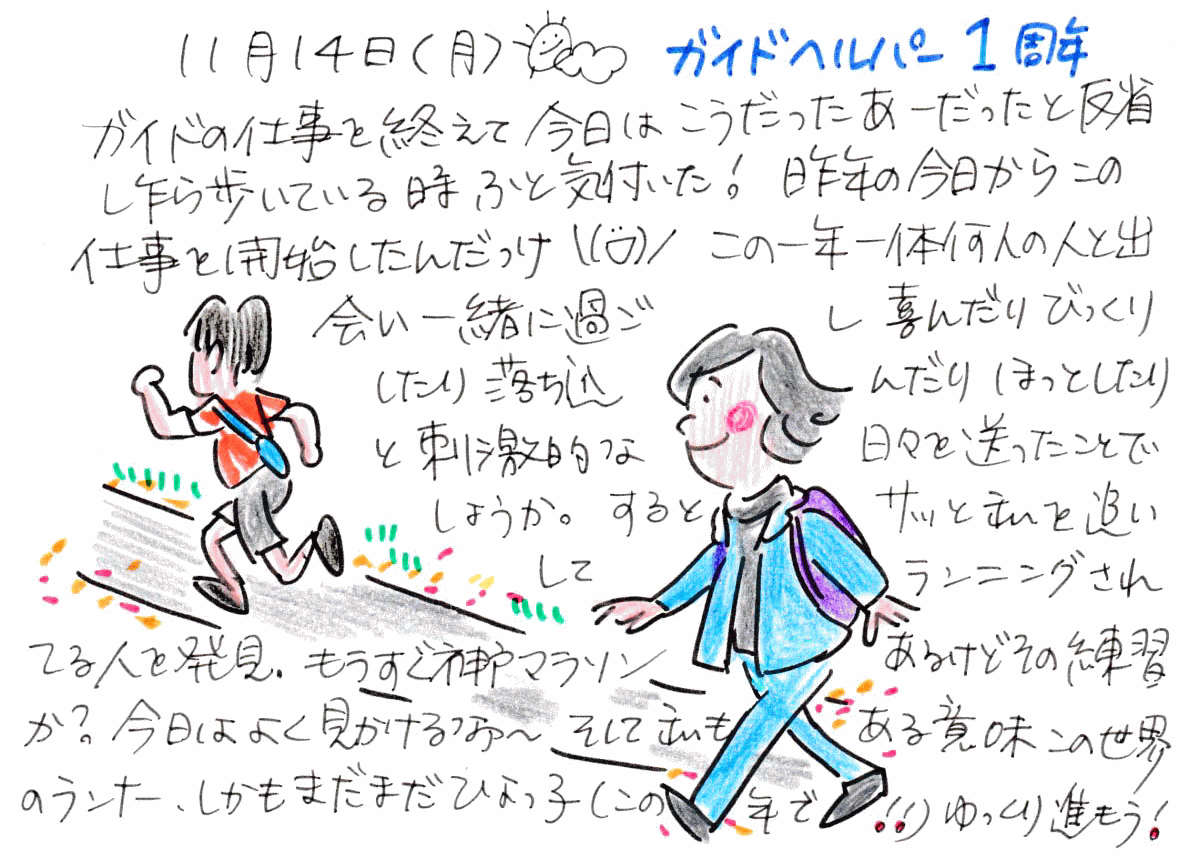 11月14日(月) ガイドヘルパー1周年
ガイドの仕事を終えて今日はこうだったあーだったと反省
し乍ら歩いている時ふと気付いた! 昨年の今日からこの
仕事を開始したんだっけ \(¨)/ この一年一体何人の人と出
会い一緒に過ごし喜んだりびっくり
したり落ち込んだりほっとしたり
と刺激的な日々を送ったことで
しょうか。するとサッと私を追い
してランニングされ
てる人を発見. もうすぐ神戸マラソンあるけどその練習
か? 今日はよく見かけるなあ〜 そして私もある意味この世界
のランナー、しかもまだまだひよっ子(この年で!!) ゆっくり進もう!